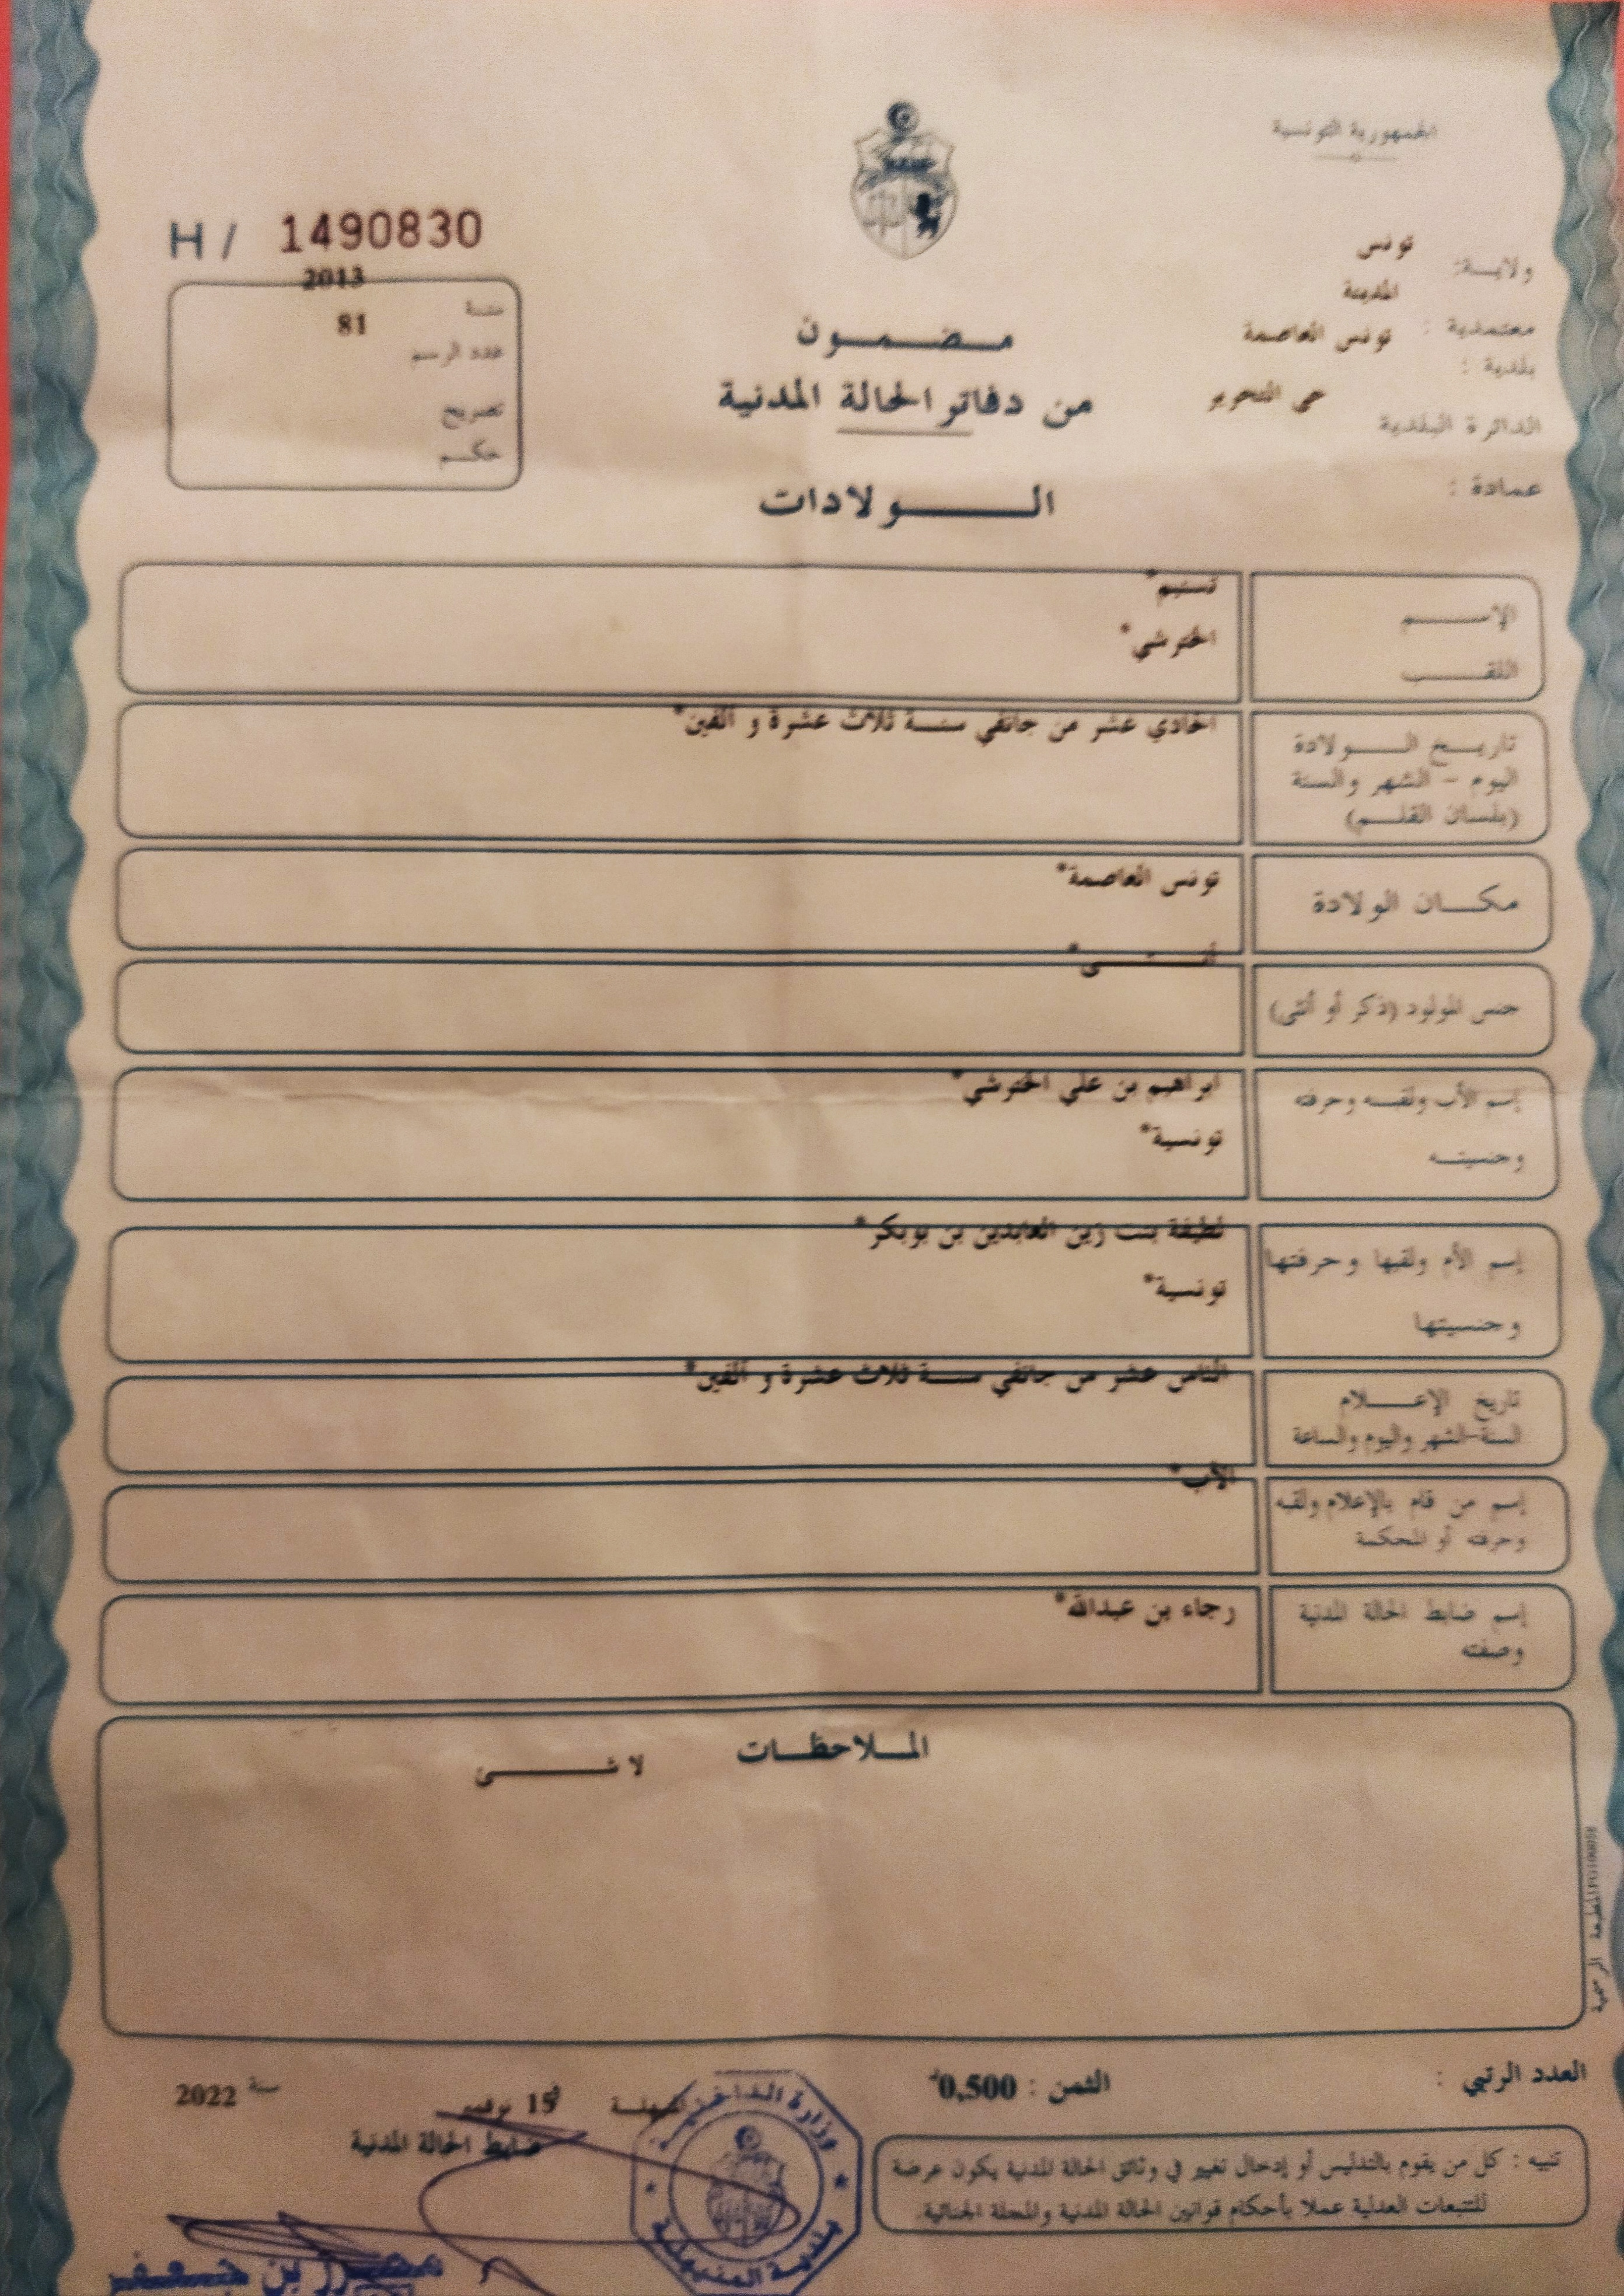 الجمهورية التونسية
H / 1490830
ولايـــة: تونس
المدينة
معتمدية : تونس العاصمة
بلدية :
حي التحرير
الدائرة البلدية
عمادة :
2013
سنة
81
عدد الرسم
تصريح
حكــم
مـضـمـون
من دفاتر الحالة المدنية
الـــولادات
الإســـم تسنيم*
اللقــب الخترشي*
تاريـــخ الـــولادة الحادي عشر من جانفي سنـــة ثلاث عشرة و ألفين*
اليوم - الشهر والسنة
(بلسان القلـــم)
مكـــان الولادة تونس العاصمة*
جنس المولود (ذكر أو أنثى) أنـــثـــى*
إسم الأب ولقبـــه وحرفته ابراهيم بن علي الخترشي*
وجنسيتـــه تونسية*
إسم الأم ولقبها وحرفتها لطيفة بنت زين العابدين بن بوبكر*
وجنسيتها تونسية*
تاريخ الإعـــلام الثامن عشر من جانفي سنـــة ثلاث عشرة و ألفين*
السنة-الشهر واليوم والساعة
إسم من قام بالإعلام ولقبه الأب*
وحرفته أو المحكمة
إسم ضابط الحالة المدنية رجاء بن عبدالله*
وصفته
المـــلاحظـــات
لا شـــــئ
المطبعة الرسمية
العدد الرتبي :
الثمن : 0,500د
المنيهلـــة في 15 نوفمبر سنة 2022
ضابط الحالة المدنية
تنبيه : كل من يقوم بالتدليس أو إدخال تغيير في وثائق الحالة المدنية يكون عرضة
للتتبعات العدلية عملا بأحكام قوانين الحالة المدنية والمجلة الجنائية.
وزارة الداخلية
بلدية المنيهلة
بن جعفر